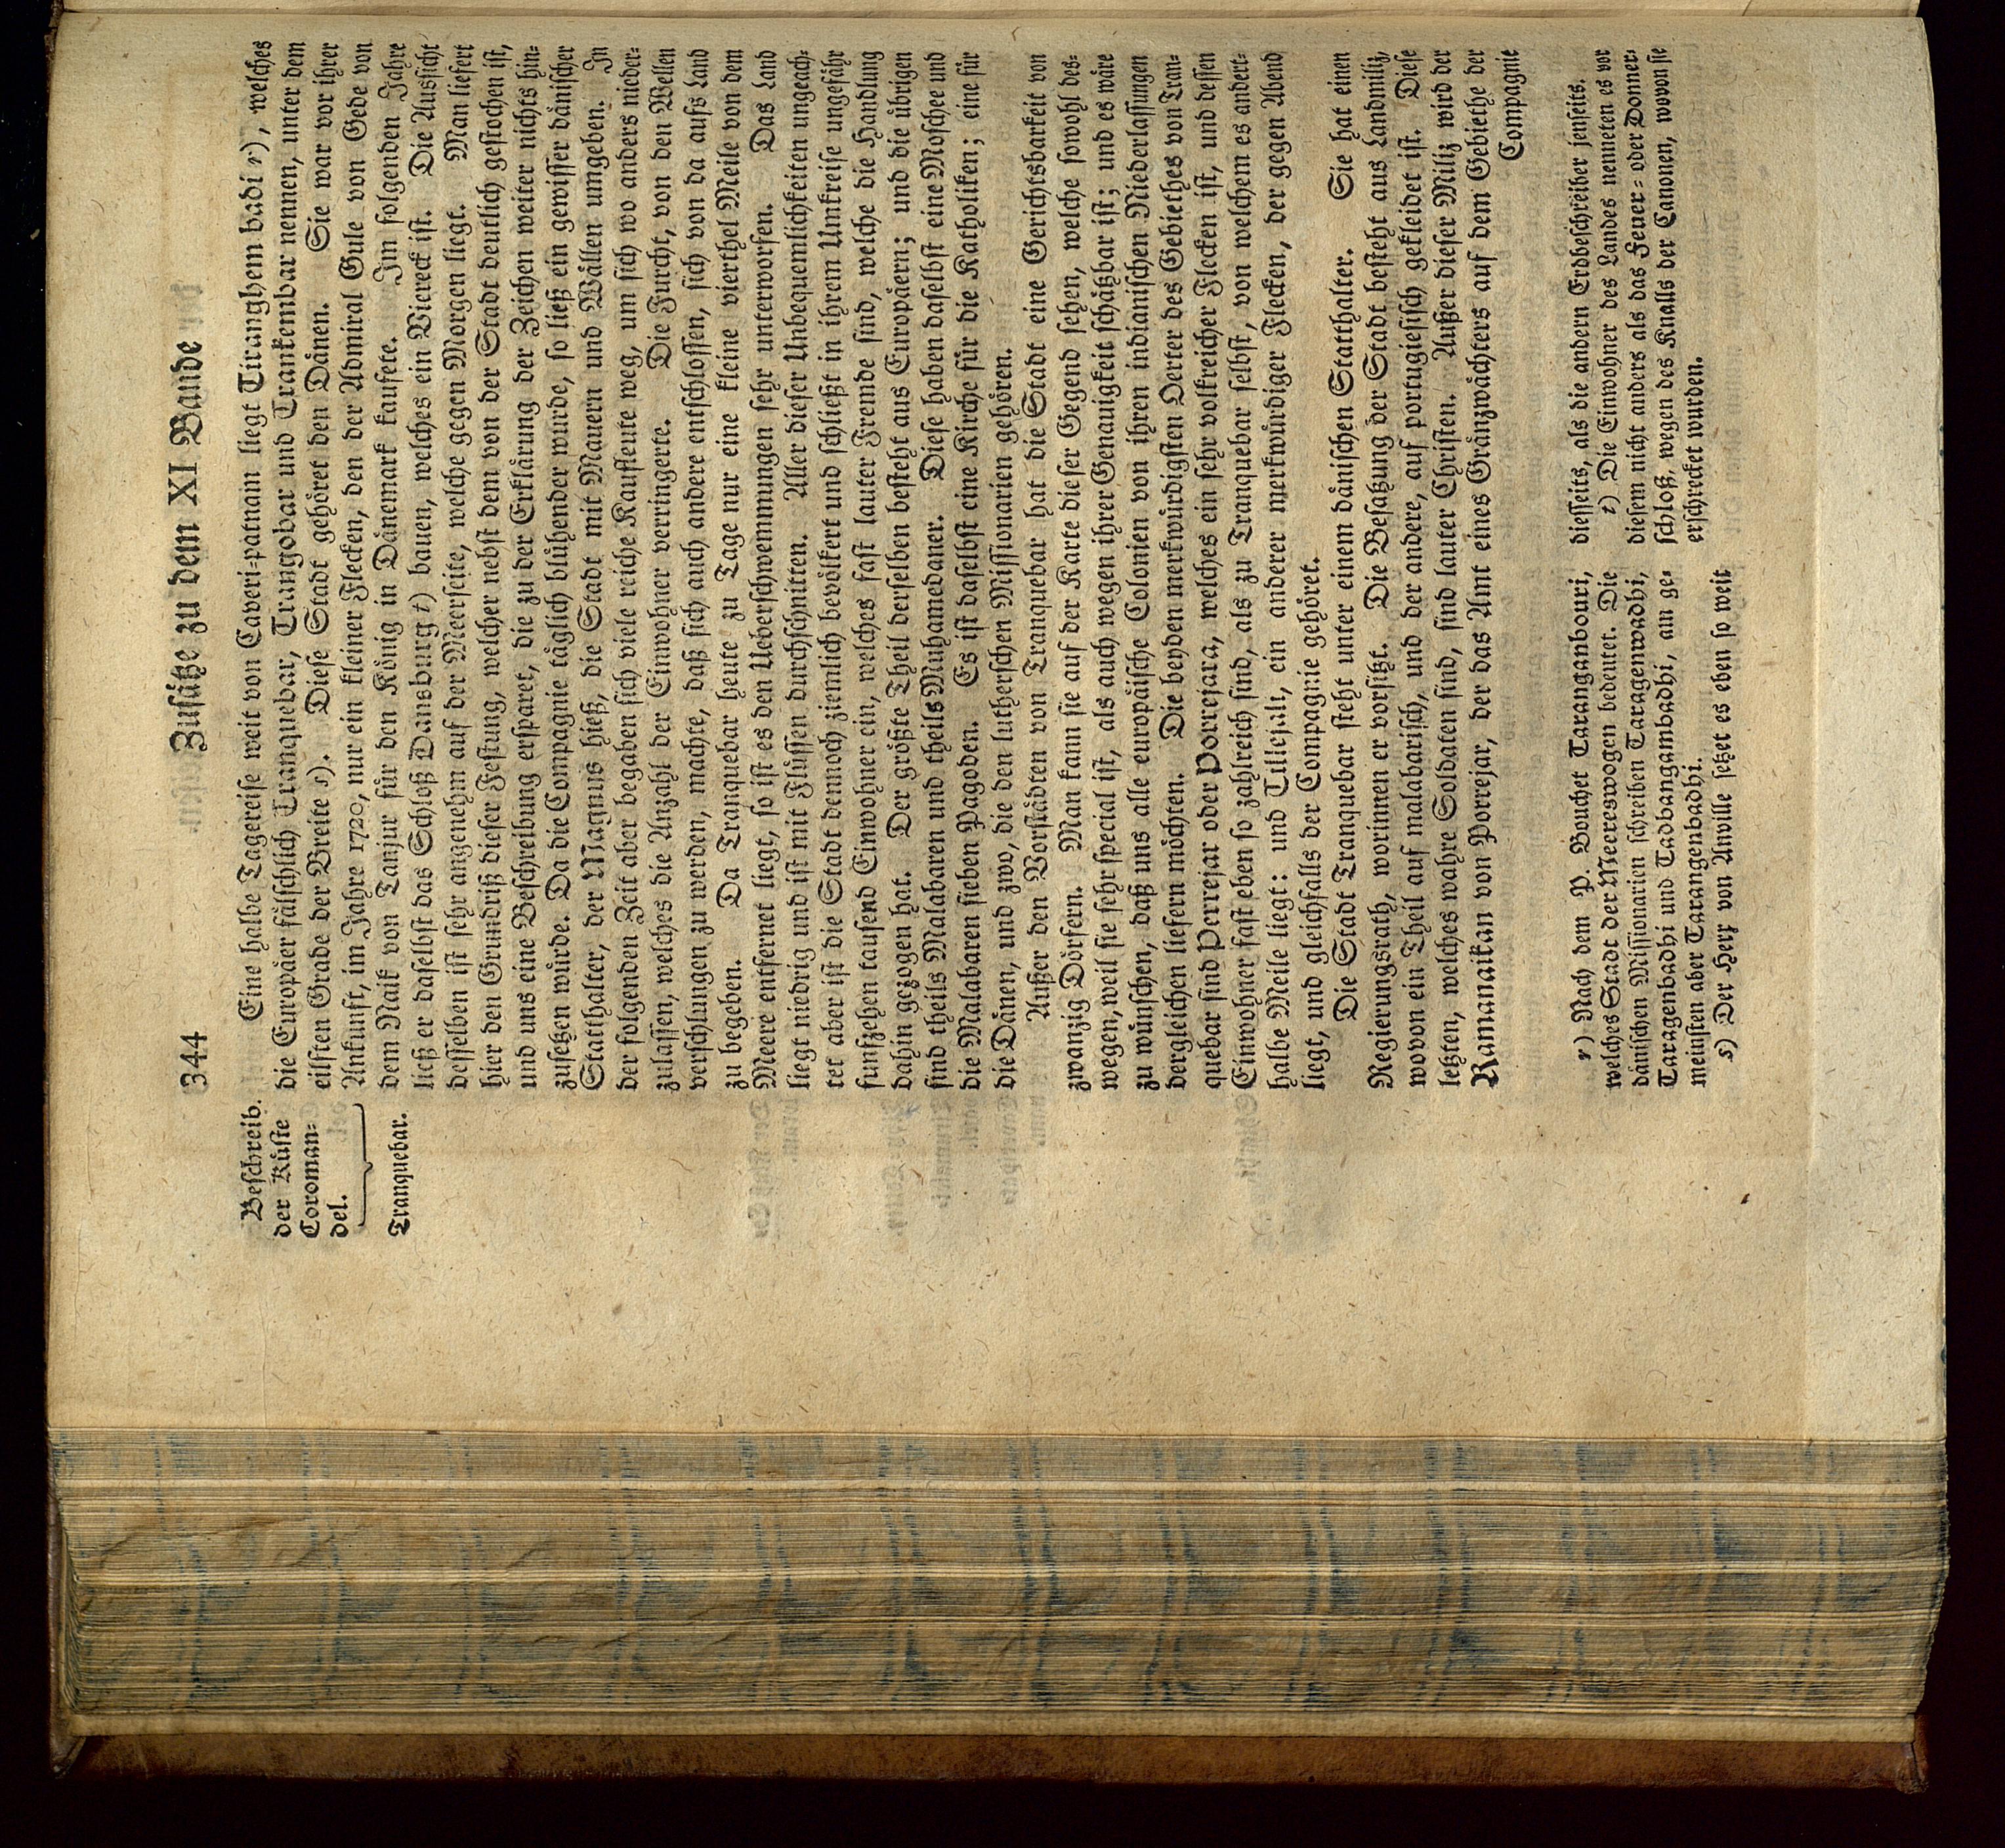 344 Zusätze zu dem XI Bande
Beschreib.
der Küste
Coroman-
del.
Eine halbe Tagereise weit von Caveri-patnam liegt Tiranghem badi r), welches
die Europäer fälschlich Tranquebar, Trangobar und Trankembar nennen, unter dem
eilften Grade der Breite s). Diese Stadt gehöret den Dänen. Sie war vor ihrer
Ankunft, im Jahre 1720, nur ein kleiner Flecken, den der Admiral Gule von Gede von
dem Naik von Tanjur für den König in Dänemark kaufete. Im folgenden Jahre
Tranquebar.
ließ er daselbst das Schloß Dansburg t) bauen, welches ein Viereck ist. Die Aussicht
desselben ist sehr angenehm auf der Meerseite, welche gegen Morgen liegt. Man liefert
hier den Grundriß dieser Festung, welcher nebst dem von der Stadt deutlich gestochen ist,
und uns eine Beschreibung ersparet, die zu der Erklärung der Zeichen weiter nichts hin-
zusetzen würde. Da die Compagnie täglich blühender wurde, so ließ ein gewisser dänischer
Statthalter, der Magnus hieß, die Stadt mit Mauern und Wällen umgeben. In
der folgenden Zeit aber begaben sich viele reiche Kaufleute weg, um sich wo anders nieder-
zulassen, welches die Anzahl der Einwohner verringerte. Die Furcht, von den Wellen
verschlungen zu werden, machte, daß sich auch andere entschlossen, sich von da aufs Land
zu begeben. Da Tranquebar heute zu Tage nur eine kleine vierthel Meile von dem
Meere entfernet liegt, so ist es den Ueberschwemmungen sehr unterworfen. Das Land
liegt niedrig und ist mit Flüssen durchschnitten. Aller dieser Unbequemlichkeiten ungeach-
tet aber ist die Stadt dennoch ziemlich bevölkert und schließt in ihrem Umkreise ungefähr
funfzehen tausend Einwohner ein, welches fast lauter Fremde sind, welche die Handlung
dahin gezogen hat. Der größte Theil derselben besteht aus Europäern; und die übrigen
sind theils Malabaren und theils Muhamedaner. Diese haben daselbst eine Moschee und
die Malabaren sieben Pagoden. Es ist daselbst eine Kirche für die Katholiken; eine für
die Dänen, und zwo, die den lutherschen Missionarien gehören.
Außer den Vorstädten von Tranquebar hat die Stadt eine Gerichtsbarkeit von
zwanzig Dörfern. Man kann sie auf der Karte dieser Gegend sehen, welche sowohl des-
wegen, weil sie sehr special ist, als auch wegen ihrer Genauigkeit schätzbar ist; und es wäre
zu wünschen, daß uns alle europäische Colonien von ihren indianischen Niederlassungen
dergleichen liefern möchten. Die beyden merkwürdigsten Oerter des Gebiethes von Tran-
quebar sind Perrejar oder Porrejara, welches ein sehr volkreicher Flecken ist, und dessen
Einwohner fast eben so zahlreich sind, als zu Tranquebar selbst, von welchem es andert-
halbe Meile liegt: und Tillejali, ein anderer merkwürdiger Flecken, der gegen Abend
liegt, und gleichfalls der Compagnie gehöret.
Die Stadt Tranquebar steht unter einem dänischen Statthalter. Sie hat einen
Regierungsrath, worinnen er vorsitzt. Die Besatzung der Stadt besteht aus Landmiliz,
wovon ein Theil auf malabarisch, und der andere, auf portugiesisch gekleidet ist. Diese
letzten, welches wahre Soldaten sind, sind lauter Christen. Außer dieser Miliz wird der
Ramanaikan von Porrejar, der das Amt eines Gränzwächters auf dem Gebiethe der
Compagnie
r) Nach dem P. Bouchet Taranganbouri,
welches Stadt der Meereswogen bedeutet. Die
dänischen Missionarien schreiben Taragenwadhi,
Taragenbadhi und Tadbangambadhi, am ge-
meinsten aber Tarangenbadhi.
s) Der Herr von Anville setzet es eben so weit
diesseits, als die andern Erdbeschreiber jenseits.
t) Die Einwohner des Landes nenneten es vor
diesem nicht anders als das Feuer- oder Donner-
schloß, wegen des Knalls der Canonen, wovon sie
erschrecket wurden.